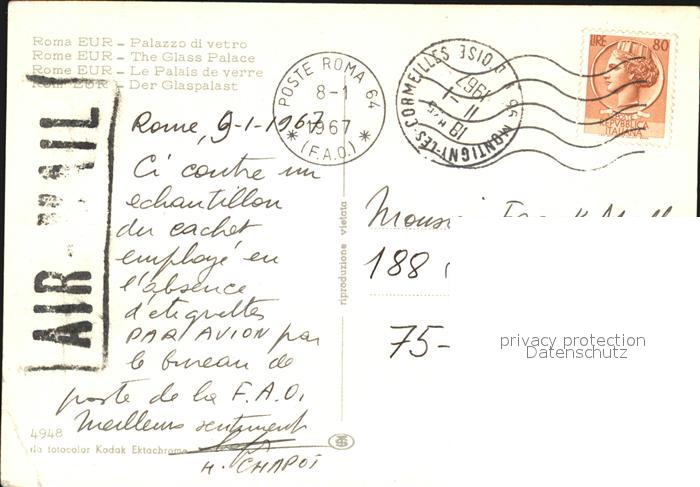 Roma EUR - Palazzo di vetro
Roma EUR - The Glass Palace
Roma EUR - Le Palais de verre
Roma EUR - Der Glaspalast
POSTE ROMA 64
8-1
1967
(F.A.O.)
95 MONTIGNY-LES-CORMEILLES S. & OISE
18 H 15
11 - 1
1967
LIRE 80
POSTE
REPVBBLICA
ITALIANA
AIR MAIL
Rome, 9-1-1967
Ci contre un
echantillon
du cachet
employé en
l'absence
d'etiquettes
PAR AVION par
le bureau de
poste de la F.A.O.
Meilleurs sentiments
H. CHAPOT
Monsieur
188
75-
privacy protection
Datenschutz
riproduzione vietata
4948
da fotocolor Kodak Ektachrome